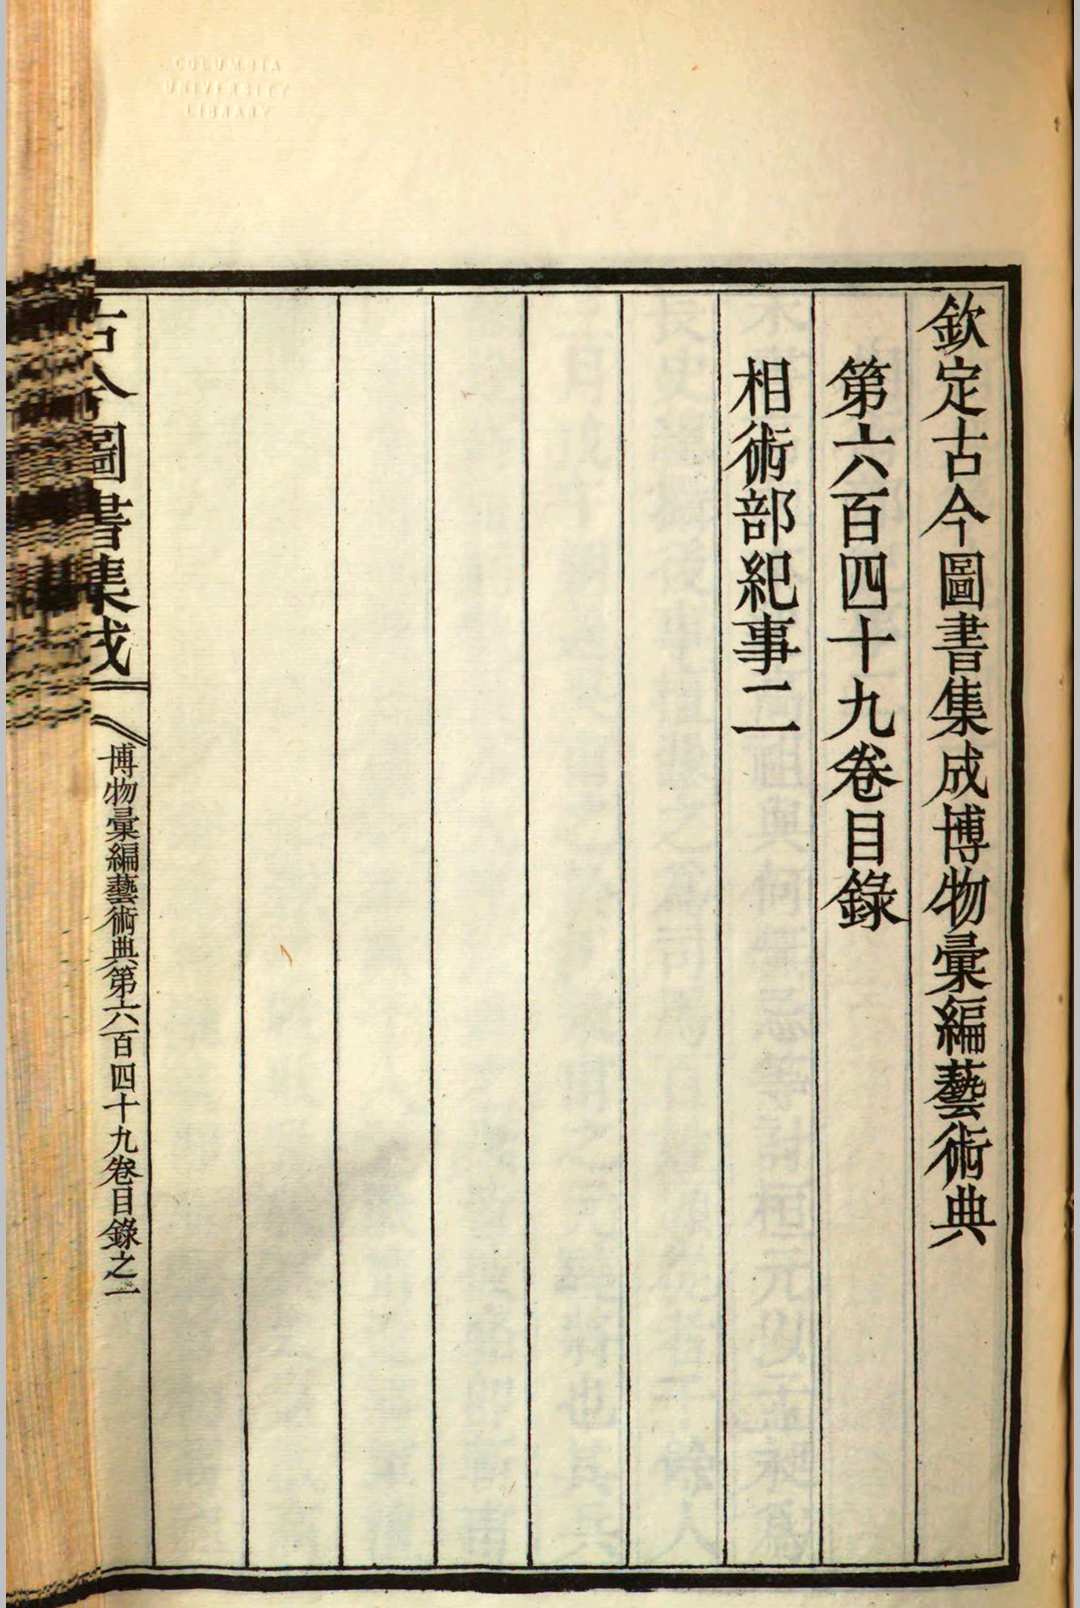 欽定古今圖書集成博物彙編藝術典
第六百四十九卷目錄
相術部紀事二
古今圖書集成
博物彙編藝術典第六百四十九卷目錄之一
COLUMBIA
UNIVERSITY
LIBRARY